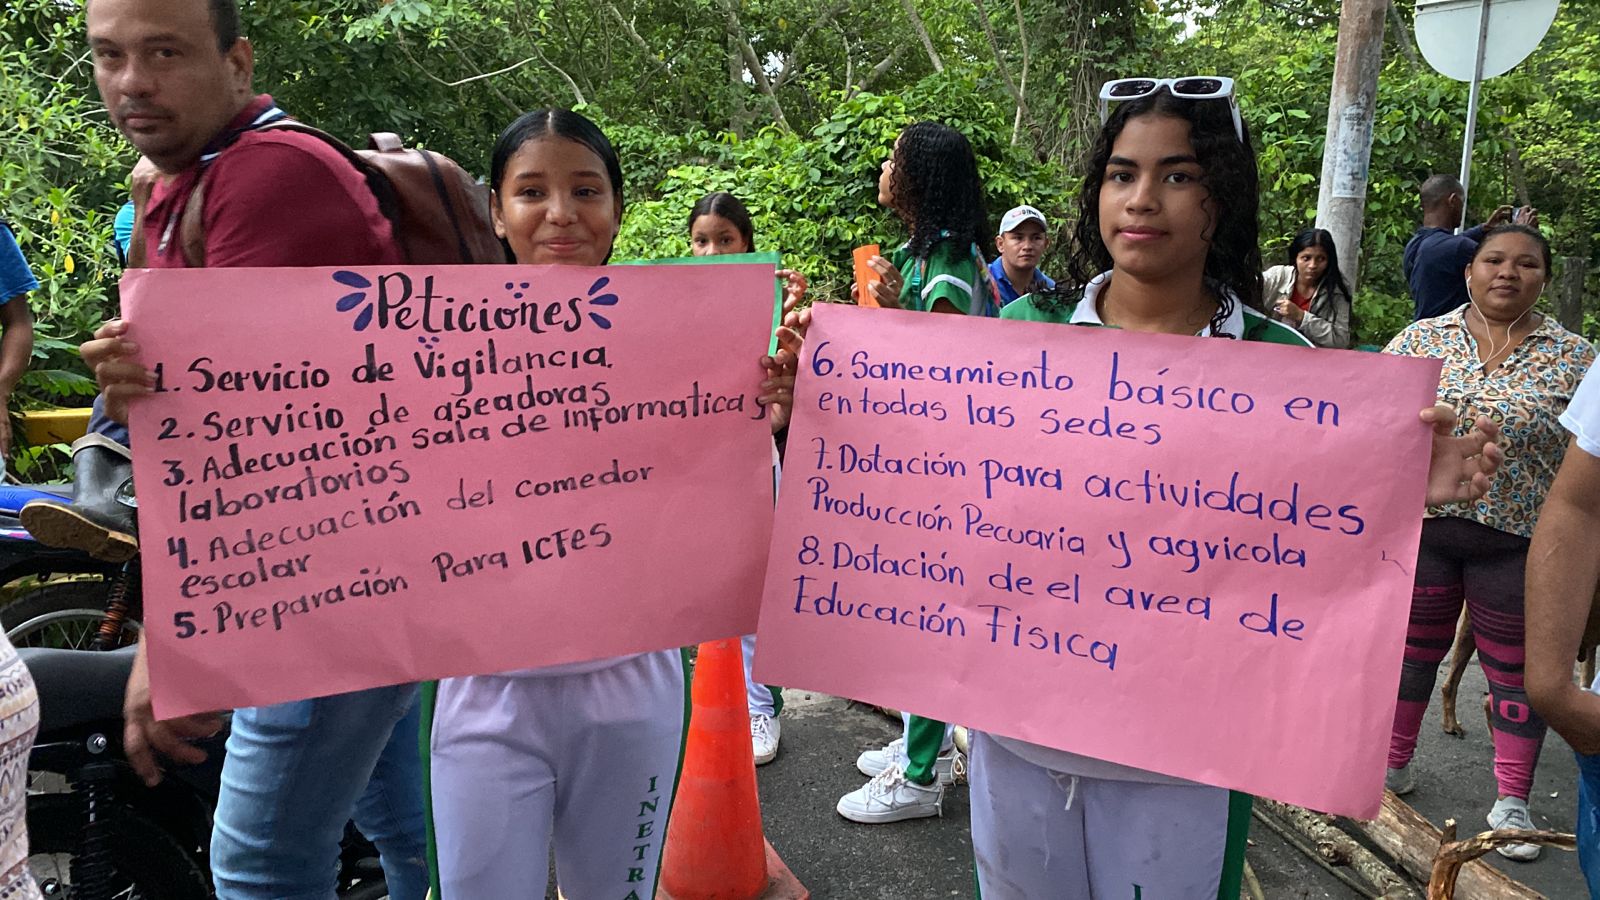 Peticiones
1. Servicio de Vigilancia.
2. Servicio de aseadoras
3. Adecuación sala de informatica y
laboratorios
4. Adecuación del comedor
escolar
5. Preparación Para ICFes
6. Saneamiento básico en
en todas las sedes
7. Dotación para actividades
Producción Pecuaria y agricola
8. Dotación de el area de
Educación Fisica
INETRA